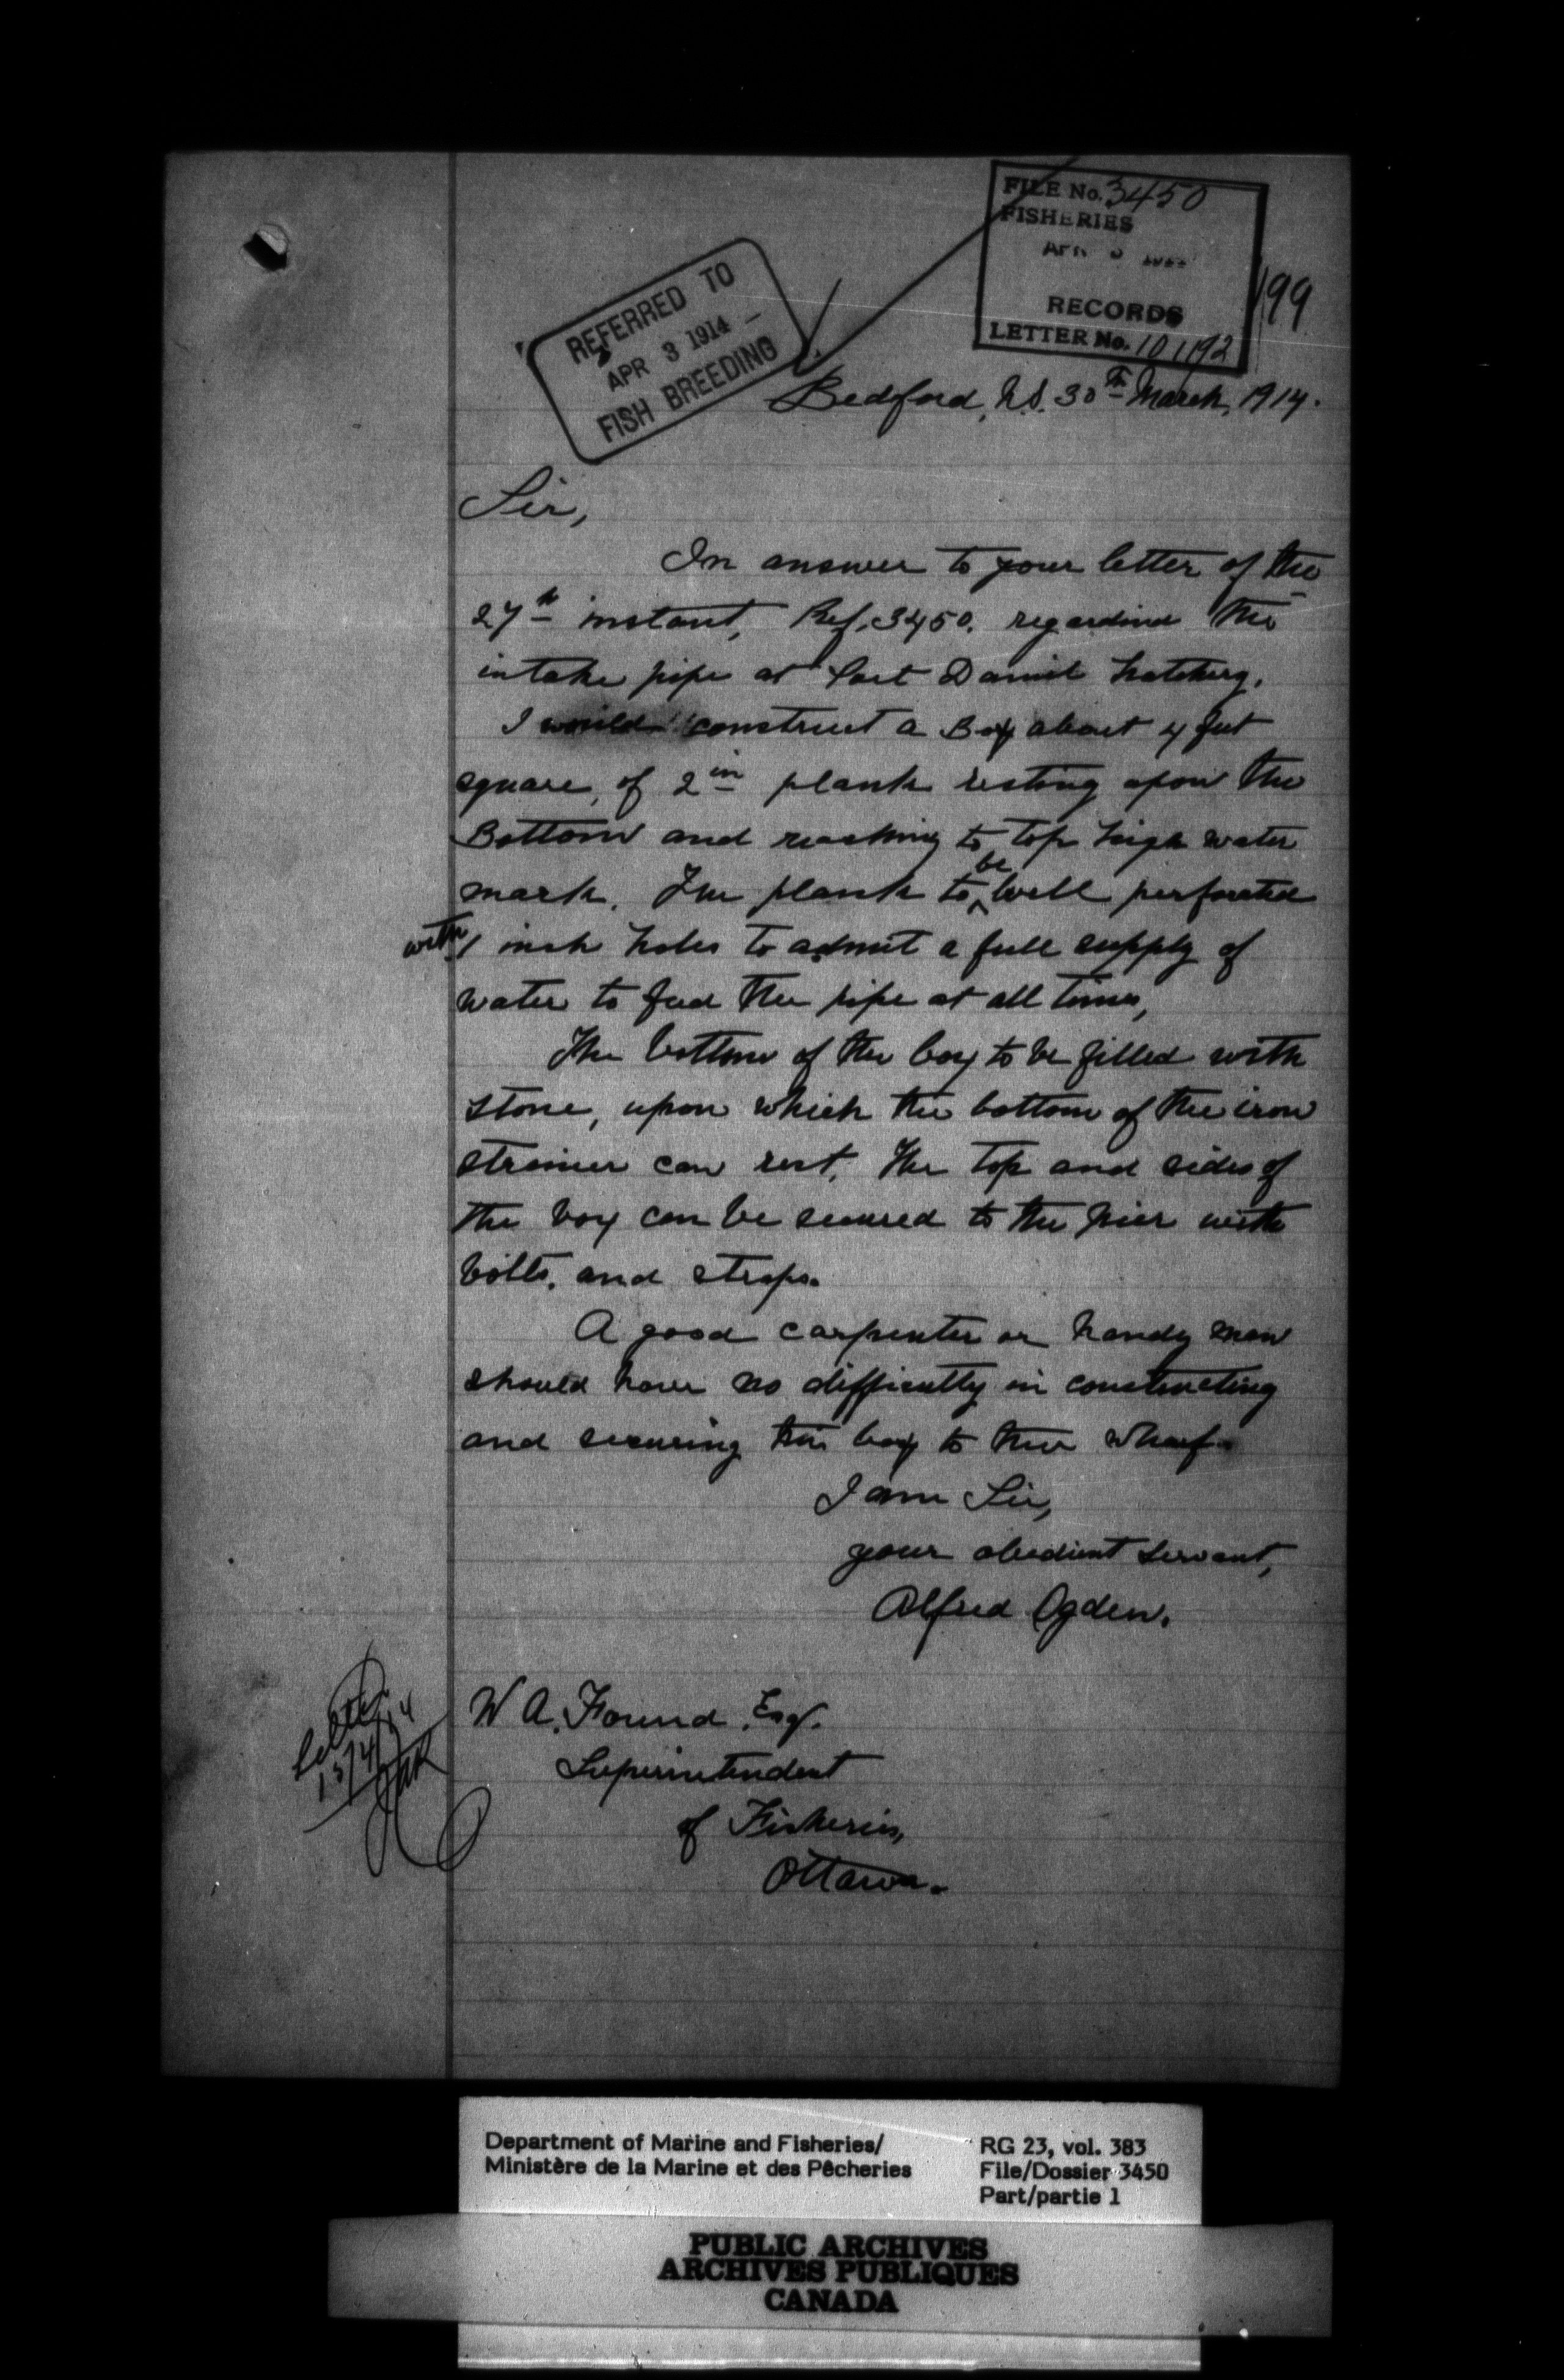 FILE No. 3450
FISHERIES
APR 3 1914
RECORDS
LETTER No. 101192
199
REFERRED TO
APR 3 1914
FISH BREEDING
Bedford, N.S. 30th March, 1914.
Sir,
In answer to your letter of the
27th instant, Ref. 3450. regarding the
intake pipe at Port Daniel hatchery.
I would construct a Box about 4 feet
square, of 2in plank resting upon the
Bottom and reaching to top high water
mark. The plank to be well perforated
with 1 inch holes to admit a full supply of
water to feed the pipe at all times,
The bottom of the box to be filled with
stone, upon which the bottom of the iron
strainer can rest. The top and sides of
the box can be secured to the pier with
bolts, and straps.
A good carpenter or handy man
should have no difficulty in constructing
and securing this box to the wharf.
I am Sir,
your obedient servant,
Alfred Ogden.
W A. Found, Esq.
Superintendent
of Fisheries,
Ottawa.
13/4/14
Department of Marine and Fisheries/
Ministère de la Marine et des Pêcheries
RG 23, vol. 383
File/Dossier 3450
Part/partie 1
PUBLIC ARCHIVES
ARCHIVES PUBLIQUES
CANADA